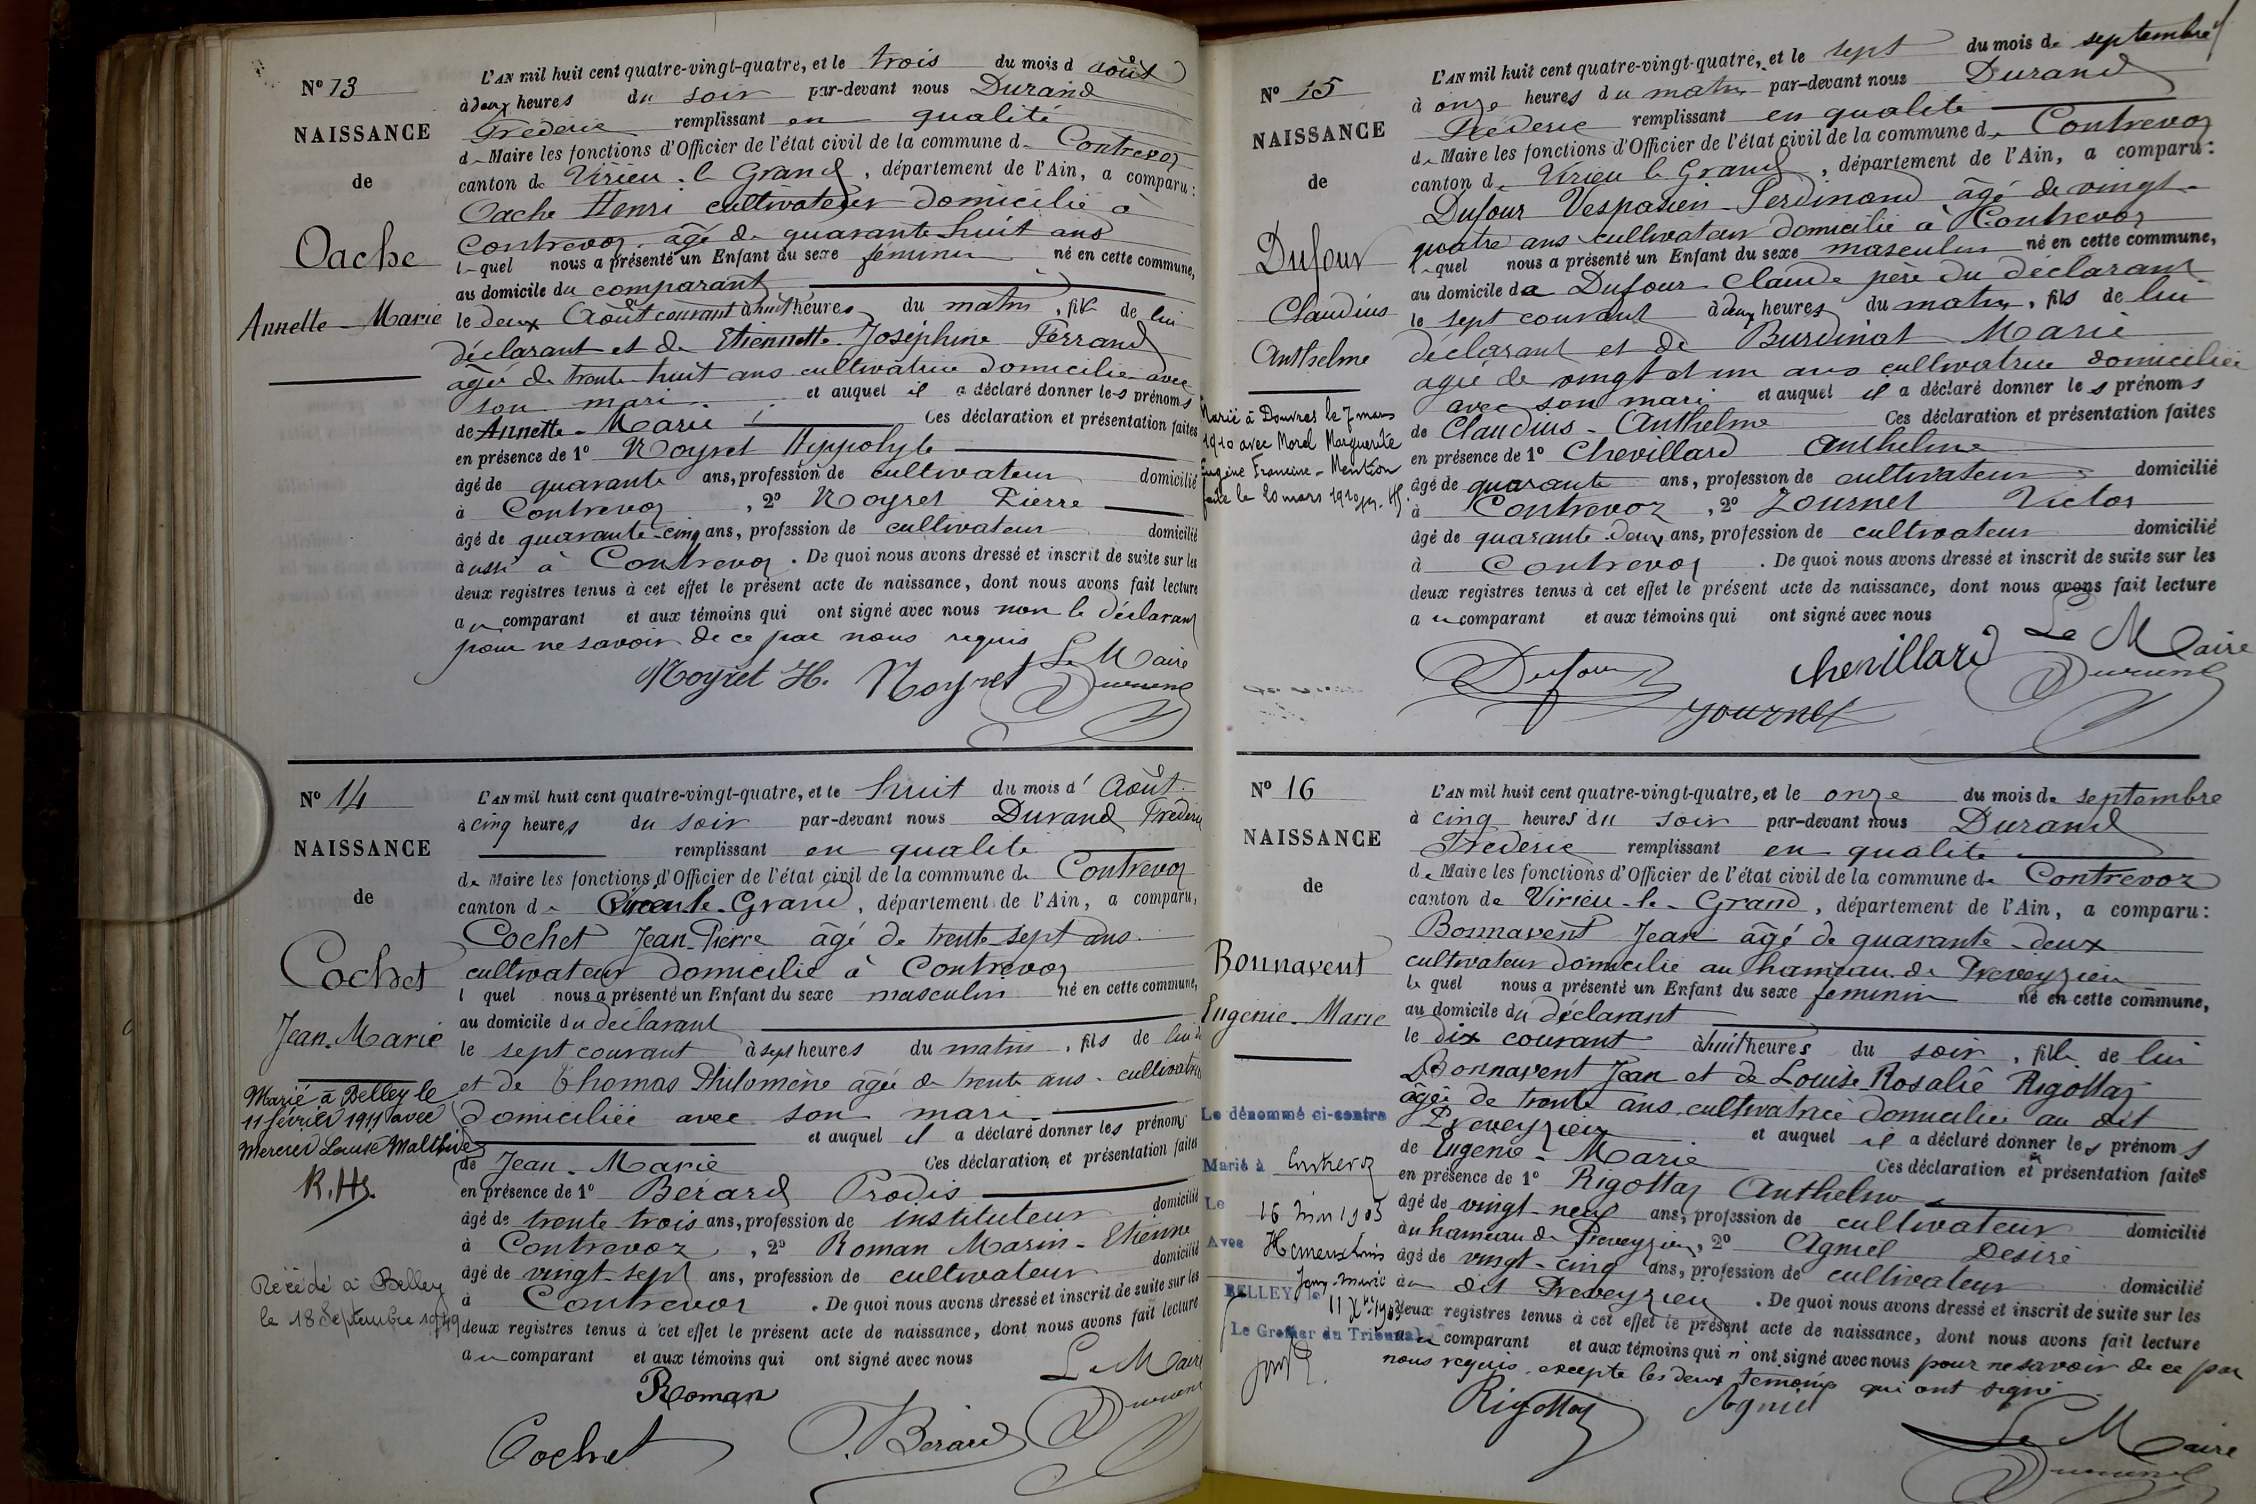 Nº 13
NAISSANCE
de
Oache
Annette-Marie
L'AN mil huit cent quatre-vingt-quatre, et le trois du mois d août
à deux heures du soir par-devant nous Durand
Frédéric remplissant en qualité
de Maire les fonctions d'Officier de l'état civil de la commune de Contrevoz
canton de Virieu-le Grand, département de l'Ain, a comparu:
Oache Henri cultivateur domicilié à
Contrevoz âgé de quarante huit ans
lequel nous a présenté un Enfant du sexe féminin né en cette commune,
au domicile du comparant
le deux Août courant à huit heures du matin, fille de lui
déclarant et de Etiennette Joséphine Ferrand
âgée de trente huit ans cultivatrice domiciliée avec
son mari et auquel il a déclaré donner les prénoms
de Annette-Marie Ces déclaration et présentation faites
en présence de 1º Noyret Hippolyte
âgé de quarante ans, profession de cultivateur domicilié
à Contrevoz, 2º Noyret Pierre
âgé de quarante-cinq ans, profession de cultivateur domicilié
aussi à Contrevoz. De quoi nous avons dressé et inscrit de suite sur les
deux registres tenus à cet effet le présent acte de naissance, dont nous avons fait lecture
au comparant et aux témoins qui ont signé avec nous non le déclarant
pour ne savoir de ce par nous requis Le Maire
Noyret H. Noyret Durand
Nº 14
NAISSANCE
de
Cochet
Jean-Marie
Marié à Belley le
11 février 1911 avec
Mercier Louise Malthide
R. Hy.
Décédé à Belley
le 18 Septembre 1949
L'AN mil huit cent quatre-vingt-quatre, et le huit du mois d'Août
à cinq heures du soir par-devant nous Durand Frédéric
remplissant en qualité
de Maire les fonctions d'Officier de l'état civil de la commune de Contrevoz
canton de Virieu-le-Grand, département de l'Ain, a comparu,
Cochet Jean-Pierre âgé de trente sept ans
cultivateur domicilié à Contrevoz
l quel nous a présenté un Enfant du sexe masculin né en cette commune,
au domicile du déclarant
le sept courant à sept heures du matin, fils de lui
et de Thomas Philomène âgée de trente ans cultivatrice
domiciliée avec son mari
et auquel il a déclaré donner les prénoms
de Jean-Marie Ces déclaration et présentation faites
en présence de 1º Bérard Prodis
âgé de trente trois ans, profession de instituteur domicilié
à Contrevoz, 2º Roman Marin-Etienne
âgé de vingt-sept ans, profession de cultivateur domicilié
à Contrevoz. De quoi nous avons dressé et inscrit de suite sur les
deux registres tenus à cet effet le présent acte de naissance, dont nous avons fait lecture
au comparant et aux témoins qui ont signé avec nous
Le Maire
Roman Durand
Cochet Bérard
Nº 15
NAISSANCE
de
Dufour
Claudius
Anthelme
Marié à Douvres le 7 mars
1910 avec Morel Marguerite
Eugène Francine - Mention
faite le 20 mars 1910
L'AN mil huit cent quatre-vingt-quatre, et le sept du mois de septembre
à onze heures du matin par-devant nous Durand
Frédéric remplissant en qualité
de Maire les fonctions d'Officier de l'état civil de la commune de Contrevoz
canton de Virieu le Grand, département de l'Ain, a comparu:
Dufour Vespasien-Ferdinand âgé de vingt-
quatre ans cultivateur domicilié à Contrevoz
lequel nous a présenté un Enfant du sexe masculin né en cette commune,
au domicile de Dufour Claude père du déclarant
le sept courant à deux heures du matin, fils de lui
déclarant et de Burdinat Marie
agée de vingt et un ans cultivatrice domiciliée
avec son mari et auquel il a déclaré donner les prénoms
de Claudius-Anthelme Ces déclaration et présentation faites
en présence de 1º Chevillard Anthelme
âgé de quarante ans, profession de cultivateur domicilié
à Contrevoz, 2º Journet Victor
âgé de quarante-deux ans, profession de cultivateur domicilié
à Contrevoz. De quoi nous avons dressé et inscrit de suite sur les
deux registres tenus à cet effet le présent acte de naissance, dont nous avons fait lecture
au comparant et aux témoins qui ont signé avec nous
Le Maire
Dufour Chevillard Durand
Journet
Nº 16
NAISSANCE
de
Bonnavent
Eugénie-Marie
Le dénommé ci-contre
Marié à Contrevoz
Le 16 1903
Avec
Jean-Marie
BELLEY, le 11 Xbre 1903
Le Greffier du Tribunal
L'AN mil huit cent quatre-vingt-quatre, et le onze du mois de septembre
à cinq heures du soir par-devant nous Durand
Frédéric remplissant en qualité
de Maire les fonctions d'Officier de l'état civil de la commune de Contrevoz
canton de Virieu-le-Grand, département de l'Ain, a comparu:
Bonnavent Jean âgé de quarante-deux
cultivateur domicilié au hameau de Preveyzieu
le quel nous a présenté un Enfant du sexe féminin né en cette commune,
au domicile du déclarant
le dix courant à huit heures du soir, fille de lui
Bonnavent Jean et de Louise Rosalie Rigottaz
âgée de trente ans cultivatrice domiciliée au dit
Preveyzieu et auquel il a déclaré donner les prénoms
de Eugénie-Marie Ces déclaration et présentation faites
en présence de 1º Rigottaz Anthelme
âgé de vingt-neuf ans, profession de cultivateur domicilié
au hameau de Preveyzieu, 2º Agniel Désiré
âgé de vingt-cinq ans, profession de cultivateur domicilié
au dit Preveyzieu. De quoi nous avons dressé et inscrit de suite sur les
deux registres tenus à cet effet le présent acte de naissance, dont nous avons fait lecture
au comparant et aux témoins qui n'ont signé avec nous pour ne savoir de ce par
nous requis excepté les deux témoins qui ont signé
Rigottaz Agniel
Le Maire
Durand